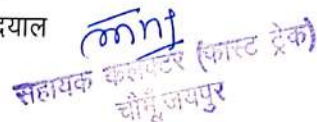 दयाल
सहायक कलक्टर (फास्ट ट्रेक)
चौमूँ जयपुर